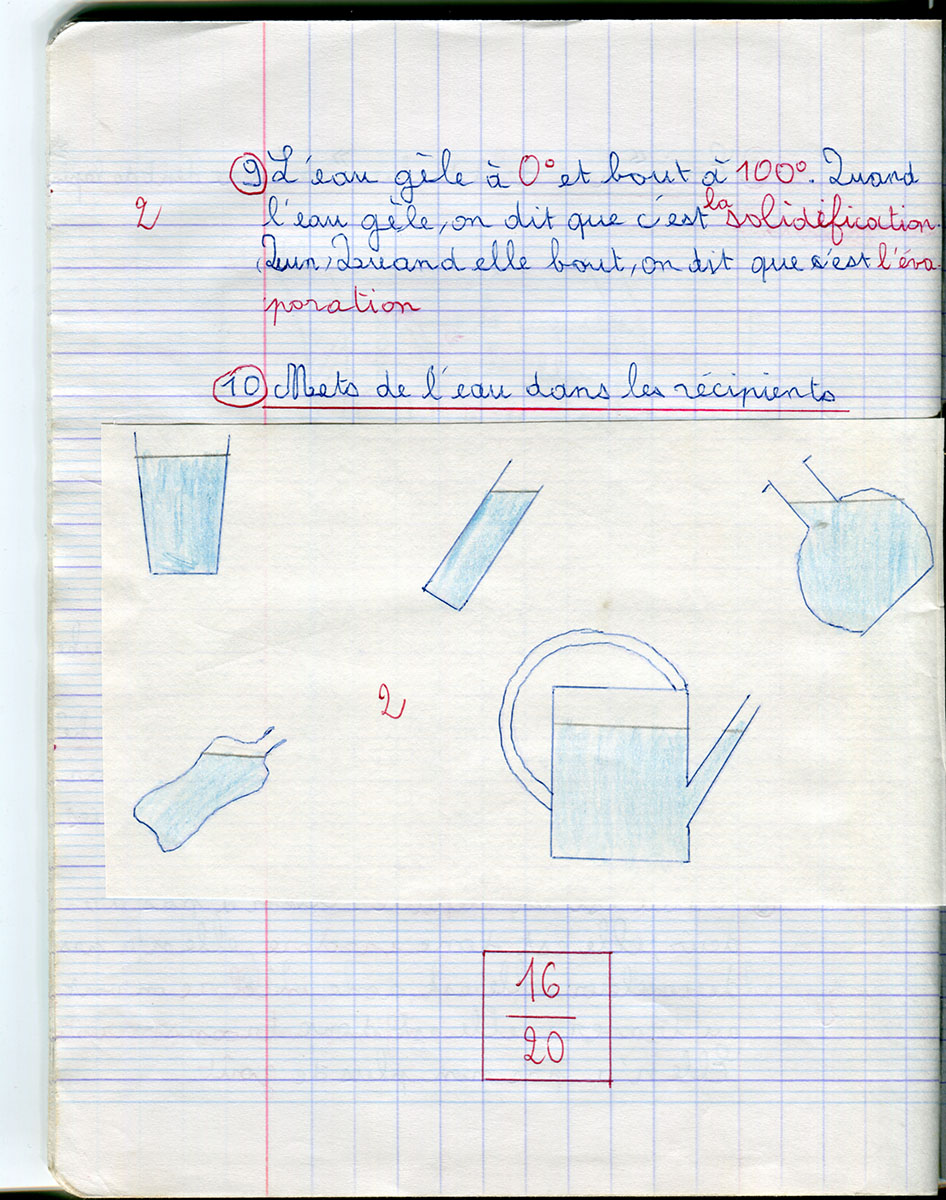 9 L'eau gèle à 0° et bout à 100°. Quand
2
l'eau gèle, on dit que c'est la solidification.
Quand elle bout, on dit que c'est l'éva
poration
10 Mets de l'eau dans les récipients
2
16
20